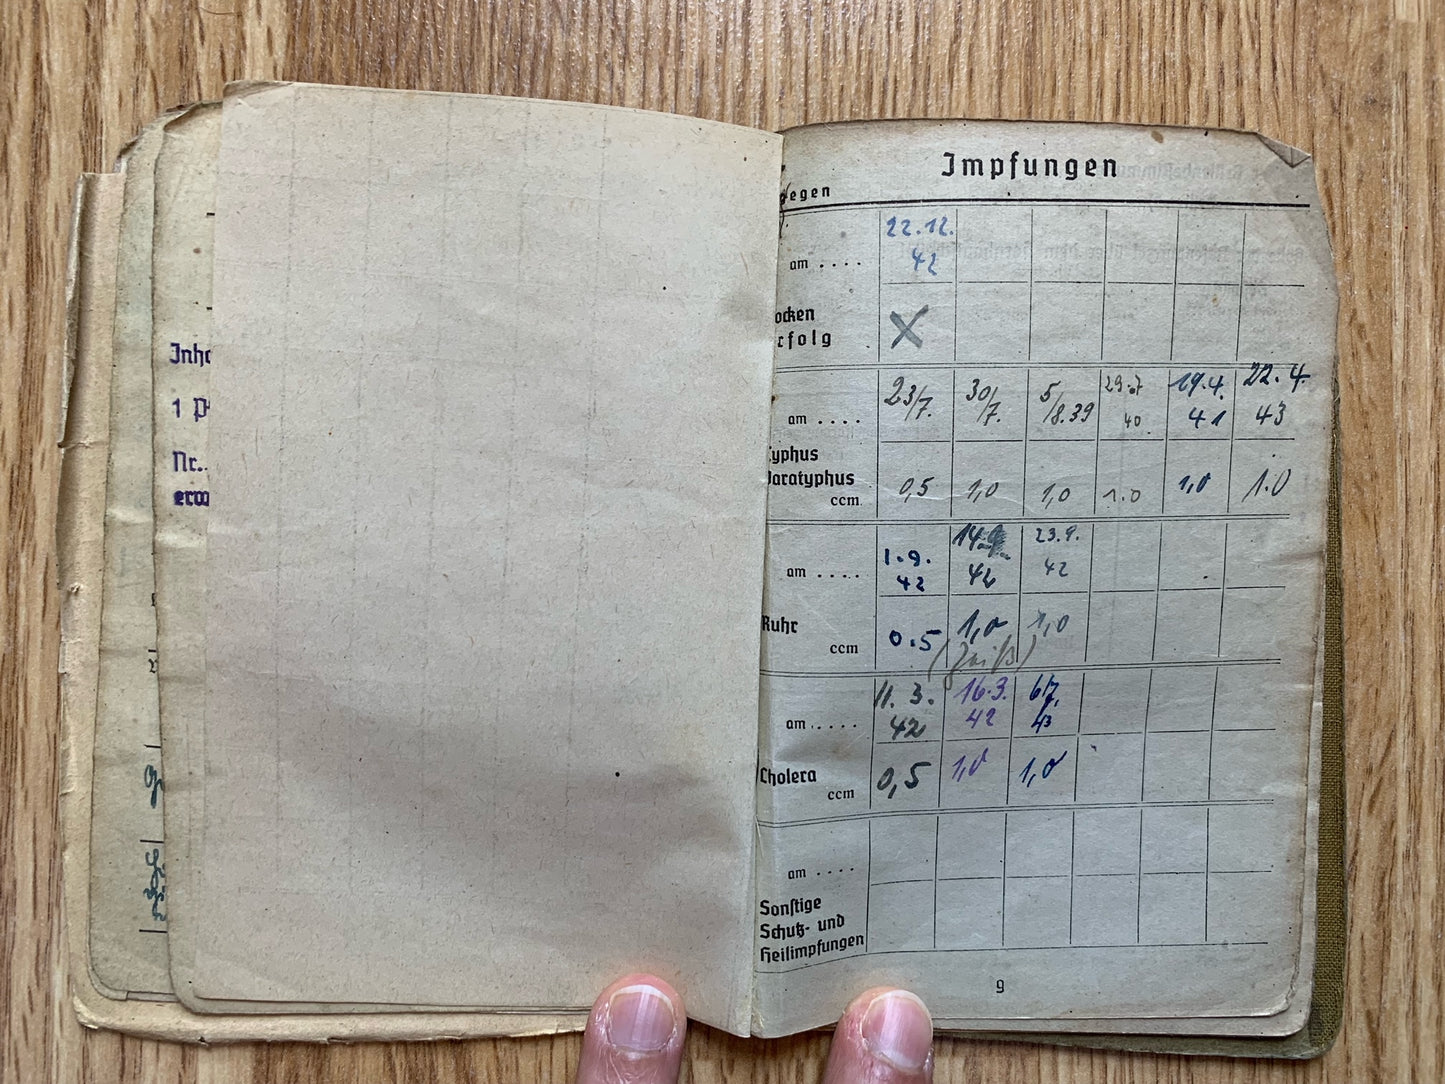 Inh
1
Nr.
Impfungen
gegen
22.12.
am .... 42
ocken
rfolg X
23/7. 30/7. 5/8.39 29.7 19.4. 22.4.
am .... 40 41 43
typhus
Paratyphus
ccm 0,5 1,0 1,0 1.0 1,0 1.0
1.9. 14.9. 23.9.
am .... 42 42 42
Ruhr 0.5 1,0 1,0
ccm
11.3. 16.3. 6/7.
am ..... 42 42 43
Cholera 0,5 1,0 1,0
ccm
am ....
Sonstige
Schutz- und
Heilimpfungen
9